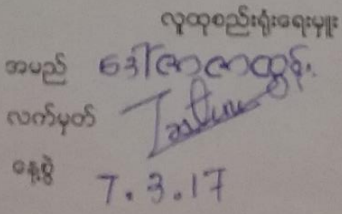 လူထုစည်းရုံးရေးမှူး
အမည် ဒေါ်ဇာဇာထွန်း
လက်မှတ်
နေ့စွဲ 7.3.17